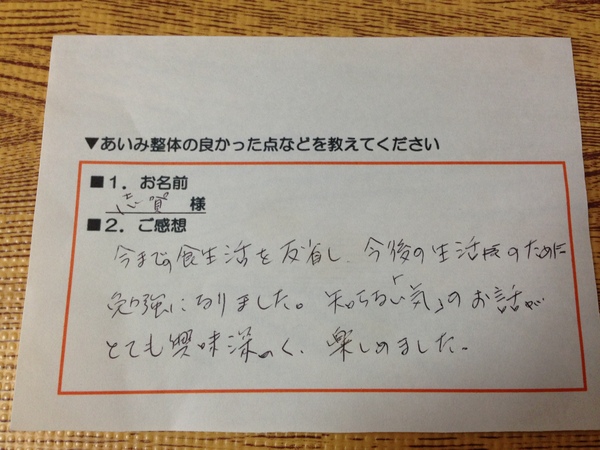 ▼あいみ整体の良かった点などを教えてください
■1．お名前
志賀 様
■2．ご感想
今までの食生活を反省し、今後の生活のために
勉強になりました。知らない「気」のお話が
とても興味深く、楽しめました。